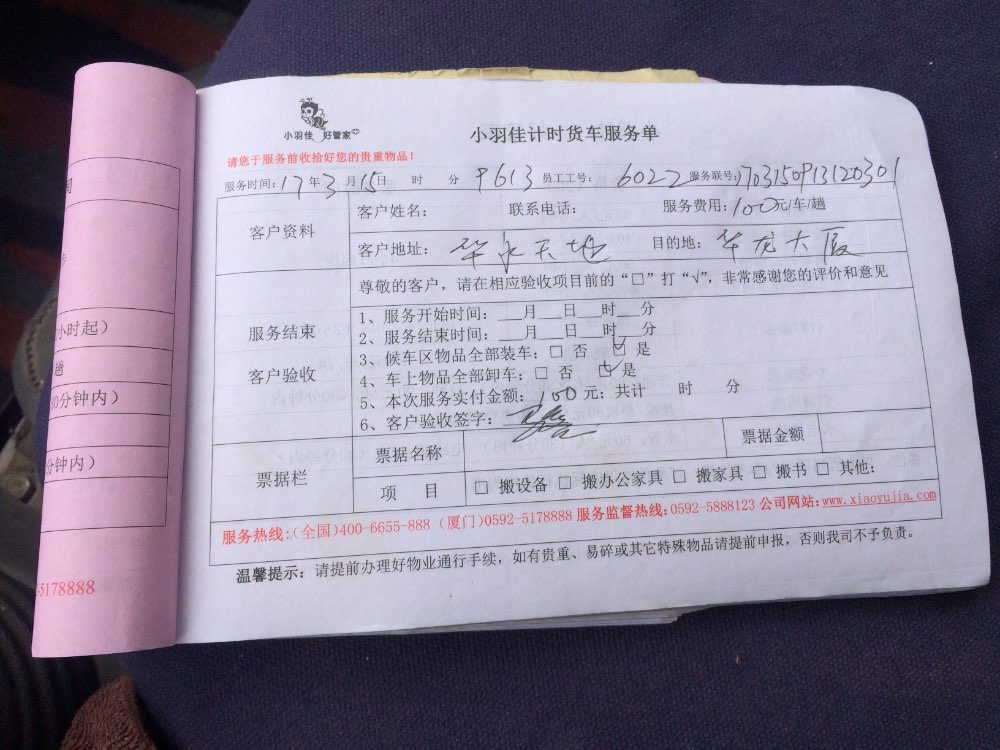 小羽佳 好管家
小羽佳计时货车服务单
请您于服务前收拾好您的贵重物品！
服务时间：17年3月15日 时 分 9613 员工工号： 6022 服务联号：1703150913120301
客户资料
客户姓名： 联系电话： 服务费用：100元/车/趟
客户地址： 华永天地 目的地：华龙大厦
服务结束
客户验收
尊敬的客户，请在相应验收项目前的“□”打“√”，非常感谢您的评价和意见
1、服务开始时间：___月___日___时___分
2、服务结束时间：___月___日___时___分
3、候车区物品全部装车：□ 否 ☑ 是
4、车上物品全部卸车：□ 否 ☑ 是
5、本次服务实付金额：100元；共计 时 分
6、客户验收签字：
票据栏
票据名称 票据金额
项 目 □ 搬设备 □ 搬办公家具 □ 搬家具 □ 搬书 □ 其他：
服务热线：（全国）400-6655-888（厦门）0592-5178888 服务监督热线：0592-5888123 公司网站：www.xiaoyujia.com
温馨提示：请提前办理好物业通行手续，如有贵重、易碎或其它特殊物品请提前申报，否则我司不予负责。
小时起）
趟
30分钟内）
分钟内）
-5178888